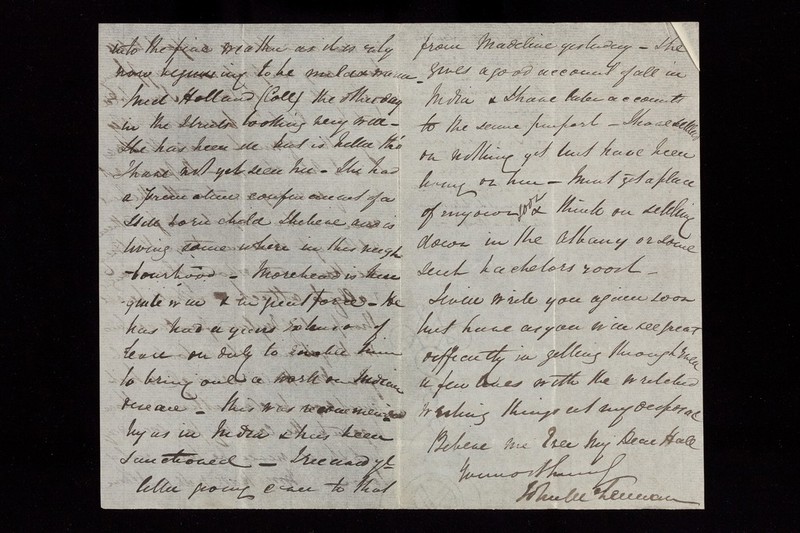 into the fine weather as it is only
now beginning to be mild & warm -
met Holland (Coll) the other day
in the Streets looking very well -
She has been ill but is better tho'
I have not yet seen her - She had
a premature confinement of a
still born child I believe and is
living some where in this neigh
-bourhood - Morehead is here
quite well & in great force - He
has had a years extension of
leave on duty to enable him
to bring out a work on Indian
disease - this was recommended
by us in India & has been
sanctioned - I received yr
letter going over to that
from Madeline yesterday - She
gives a good account of all in
India & I have later accounts
to the same purport - I have settled
on nothing yet but have been
living on here - Must get a place
of my own soon & think on settling
down in the Albany or some
such bachelors roost -
I will write you again soon
but have as you will see great
difficulty in getting through even
a few lines with the wretched
writing things at my disposal
Believe me Ever My Dear Hall
Yours